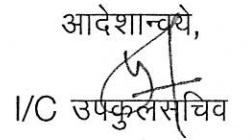 आदेशान्वये,
I/C उपकुलसचिव